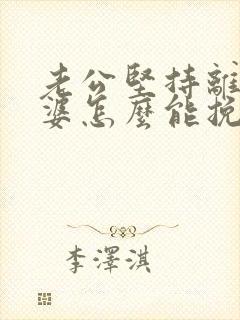 老公堅持離
婆怎麼能挽
李澤淇